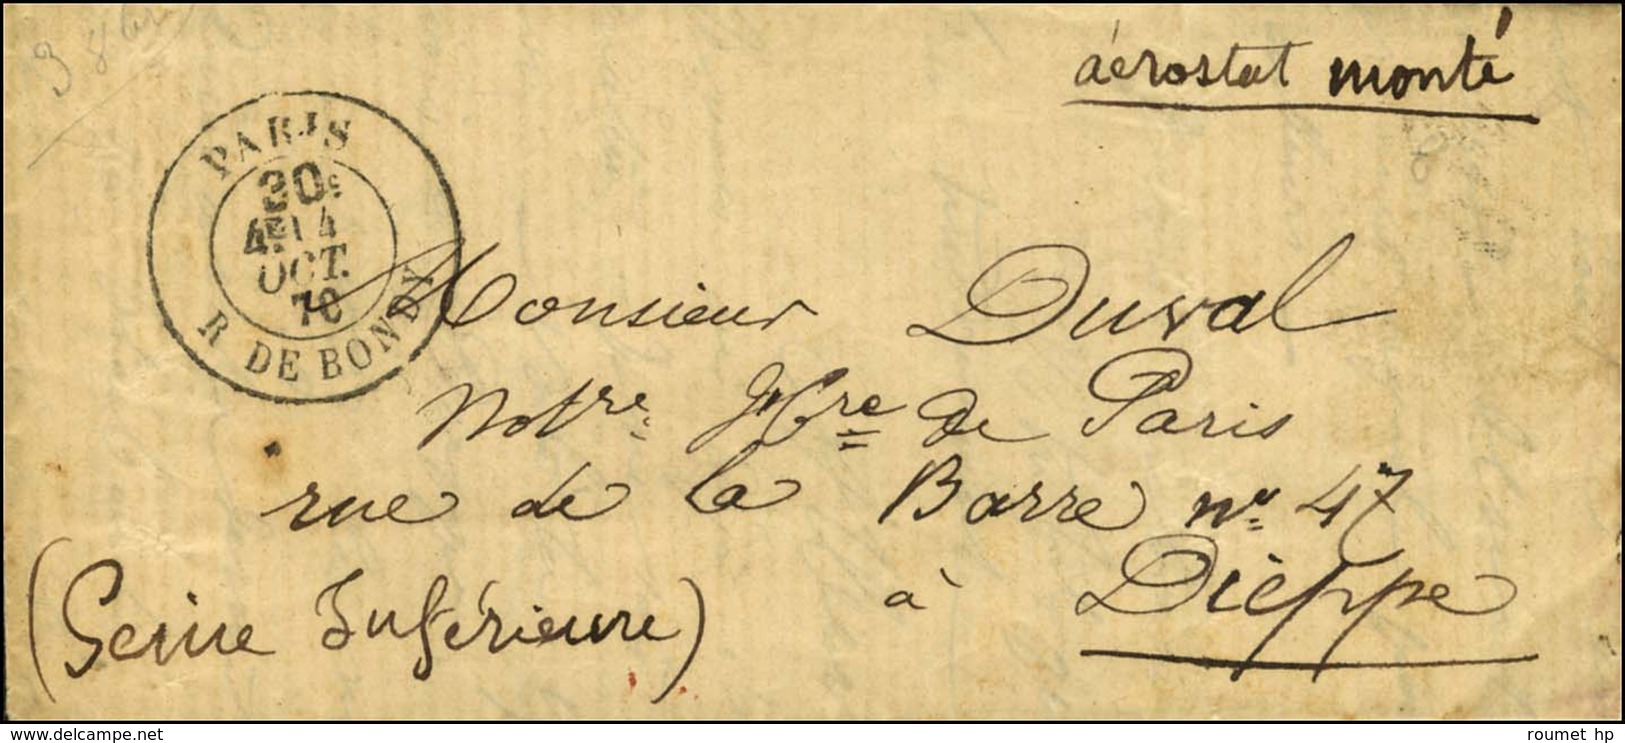 aérostat monté
PARIS
30c
4E 14
OCT.
70
R. DE BONDY
Monsieur Duval
Notre de Paris
rue de la Barre no 47
à Dieppe
(Seine Inférieure)
www.delcampe.net
roumet hp